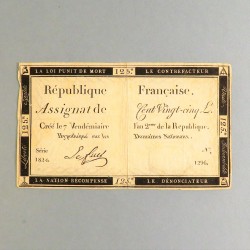 LA LOI PUNIT DE MORT 125.# LE CONTREFACTEUR
République Française.
Assignat de Cent Vingt-cinq L.
Créé le 7 Vendémiaire l'an 2me de la République.
Hypothéqué sur les Domaines Nationaux.
Série N.
1824.
LA NATION RÉCOMPENSE 125.# LE DÉNONCIATEUR